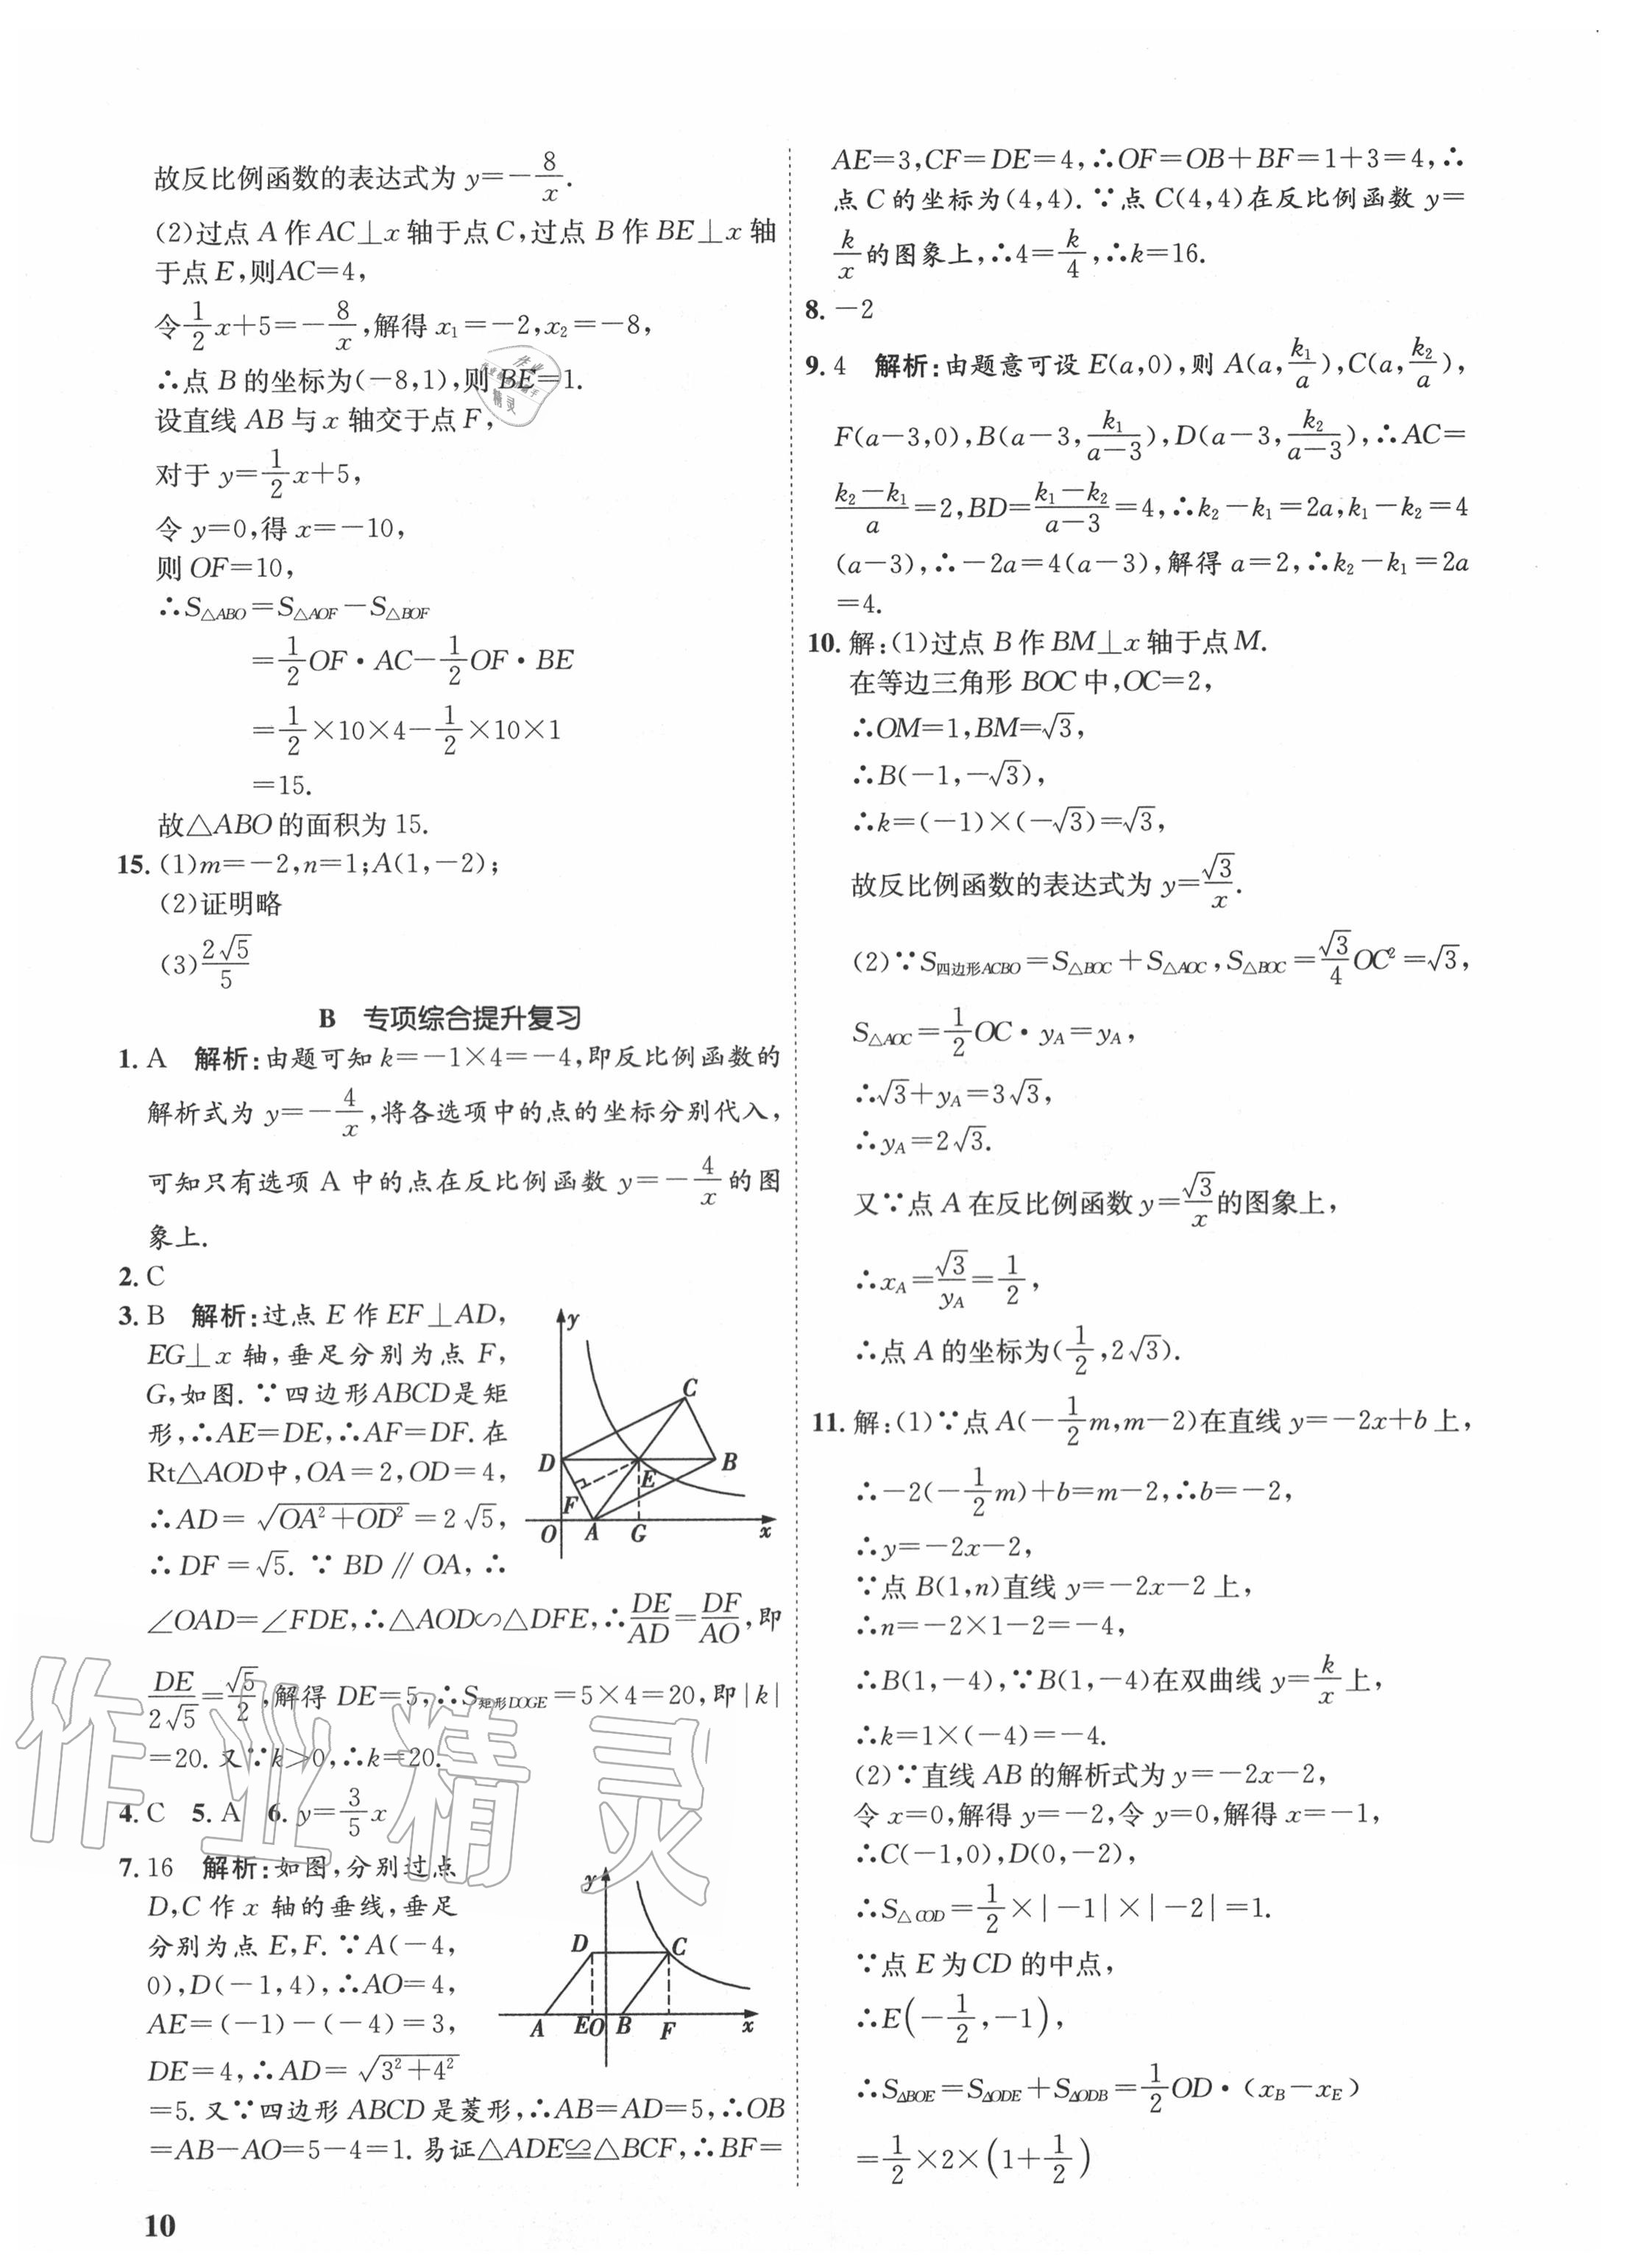 故反比例函数的表达式为 y=-8/x.
(2)过点 A 作 AC⊥x 轴于点 C,过点 B 作 BE⊥x 轴
于点 E,则AC=4,
令1/2x+5=-8/x,解得 x₁=-2,x₂=-8,
∴点 B 的坐标为(-8,1),则 BE=1.
设直线 AB 与 x 轴交于点 F,
对于 y=1/2x+5,
令 y=0,得 x=-10,
则 OF=10,
∴S△ABO=S△AOF-S△BOF
=1/2OF·AC-1/2OF·BE
=1/2×10×4-1/2×10×1
=15.
故△ABO 的面积为 15.
15. (1)m=-2,n=1;A(1,-2);
(2)证明略
(3)2√5/5
B 专项综合提升复习
1. A 解析:由题可知 k=-1×4=-4,即反比例函数的
解析式为 y=-4/x,将各选项中的点的坐标分别代入,
可知只有选项 A 中的点在反比例函数 y=-4/x的图
象上.
2. C
3. B 解析:过点 E 作 EF⊥AD,
EG⊥x 轴,垂足分别为点 F,
G,如图.∵四边形ABCD是矩
形,∴AE=DE,∴AF=DF.在
Rt△AOD中,OA=2,OD=4,
∴AD=√(OA²+OD²)=2√5,
∴DF=√5.∵BD∥OA,∴
y
C
D
B
E
F
O A G x
∠OAD=∠FDE,∴△AOD∽△DFE,∴DE/AD=DF/AO,即
DE/2√5=√5/2,解得 DE=5,∴S矩形DOGE=5×4=20,即|k|
=20.又∵k>0,∴k=20.
4. C 5. A 6. y=3/5x
7. 16 解析:如图,分别过点
D,C 作 x 轴的垂线,垂足
分别为点 E,F.∵A(-4,
0),D(-1,4),∴AO=4,
AE=(-1)-(-4)=3,
DE=4,∴AD=√(3²+4²)
y
D C
A E O B F x
=5.又∵四边形 ABCD 是菱形,∴AB=AD=5,∴OB
=AB-AO=5-4=1.易证△ADE≌△BCF,∴BF=
10
AE=3,CF=DE=4,∴OF=OB+BF=1+3=4,∴
点 C 的坐标为(4,4).∵点 C(4,4)在反比例函数 y=
k/x的图象上,∴4=k/4,∴k=16.
8. -2
9. 4 解析:由题意可设 E(a,0),则 A(a,k₁/a),C(a,k₂/a),
F(a-3,0),B(a-3,k₁/(a-3)),D(a-3,k₂/(a-3)),∴AC=
(k₂-k₁)/a=2,BD=(k₁-k₂)/(a-3)=4,∴k₂-k₁=2a,k₁-k₂=4
(a-3),∴-2a=4(a-3),解得 a=2,∴k₂-k₁=2a
=4.
10. 解:(1)过点 B 作 BM⊥x 轴于点 M.
在等边三角形 BOC 中,OC=2,
∴OM=1,BM=√3,
∴B(-1,-√3),
∴k=(-1)×(-√3)=√3,
故反比例函数的表达式为 y=√3/x.
(2)∵S四边形ACBO=S△BOC+S△AOC,S△BOC=√3/4OC²=√3,
S△AOC=1/2OC·yA=yA,
∴√3+yA=3√3,
∴yA=2√3.
又∵点 A 在反比例函数 y=√3/x的图象上,
∴xA=√3/yA=1/2,
∴点 A 的坐标为(1/2,2√3).
11. 解:(1)∵点 A(-1/2m,m-2)在直线 y=-2x+b 上,
∴-2(-1/2m)+b=m-2,∴b=-2,
∴y=-2x-2,
∵点 B(1,n)直线 y=-2x-2 上,
∴n=-2×1-2=-4,
∴B(1,-4),∵B(1,-4)在双曲线 y=k/x上,
∴k=1×(-4)=-4.
(2)∵直线 AB 的解析式为 y=-2x-2,
令 x=0,解得 y=-2,令 y=0,解得 x=-1,
∴C(-1,0),D(0,-2),
∴S△COD=1/2×|-1|×|-2|=1.
∵点 E 为 CD 的中点,
∴E(-1/2,-1),
∴S△BOE=S△ODE+S△ODB=1/2OD·(xB-xE)
=1/2×2×(1+1/2)
作业精灵